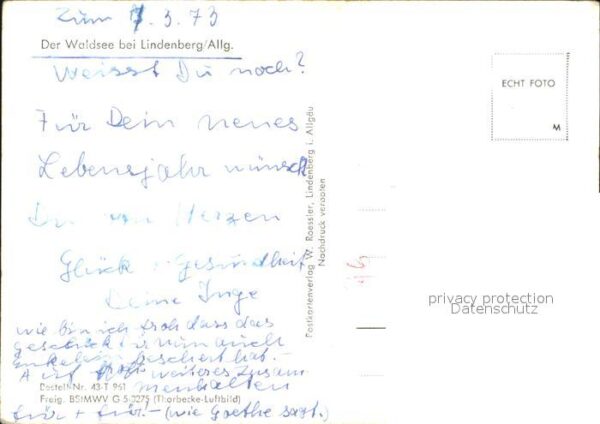 Zum 7.3.73
Der Waldsee bei Lindenberg/Allg.
Weisst Du noch?
Für Dein neues
Lebensjahr wünscht
Dir von Herzen
Glück + Gesundheit
Deine Inge
wie bin ich froh dass das
Geschick uns nun auch
beschert hat.-
Auf weiteres Zusam
menhalten
für + für.- (wie Goethe sagt.)
Bestell-Nr. 43-T 961
Freig. BStMWV G 5-3275 (Thorbecke-Luftbild)
Postkartenverlag W. Roessler, Lindenberg i. Allgäu
Nachdruck verboten
ECHT FOTO
M
privacy protection
Datenschutz